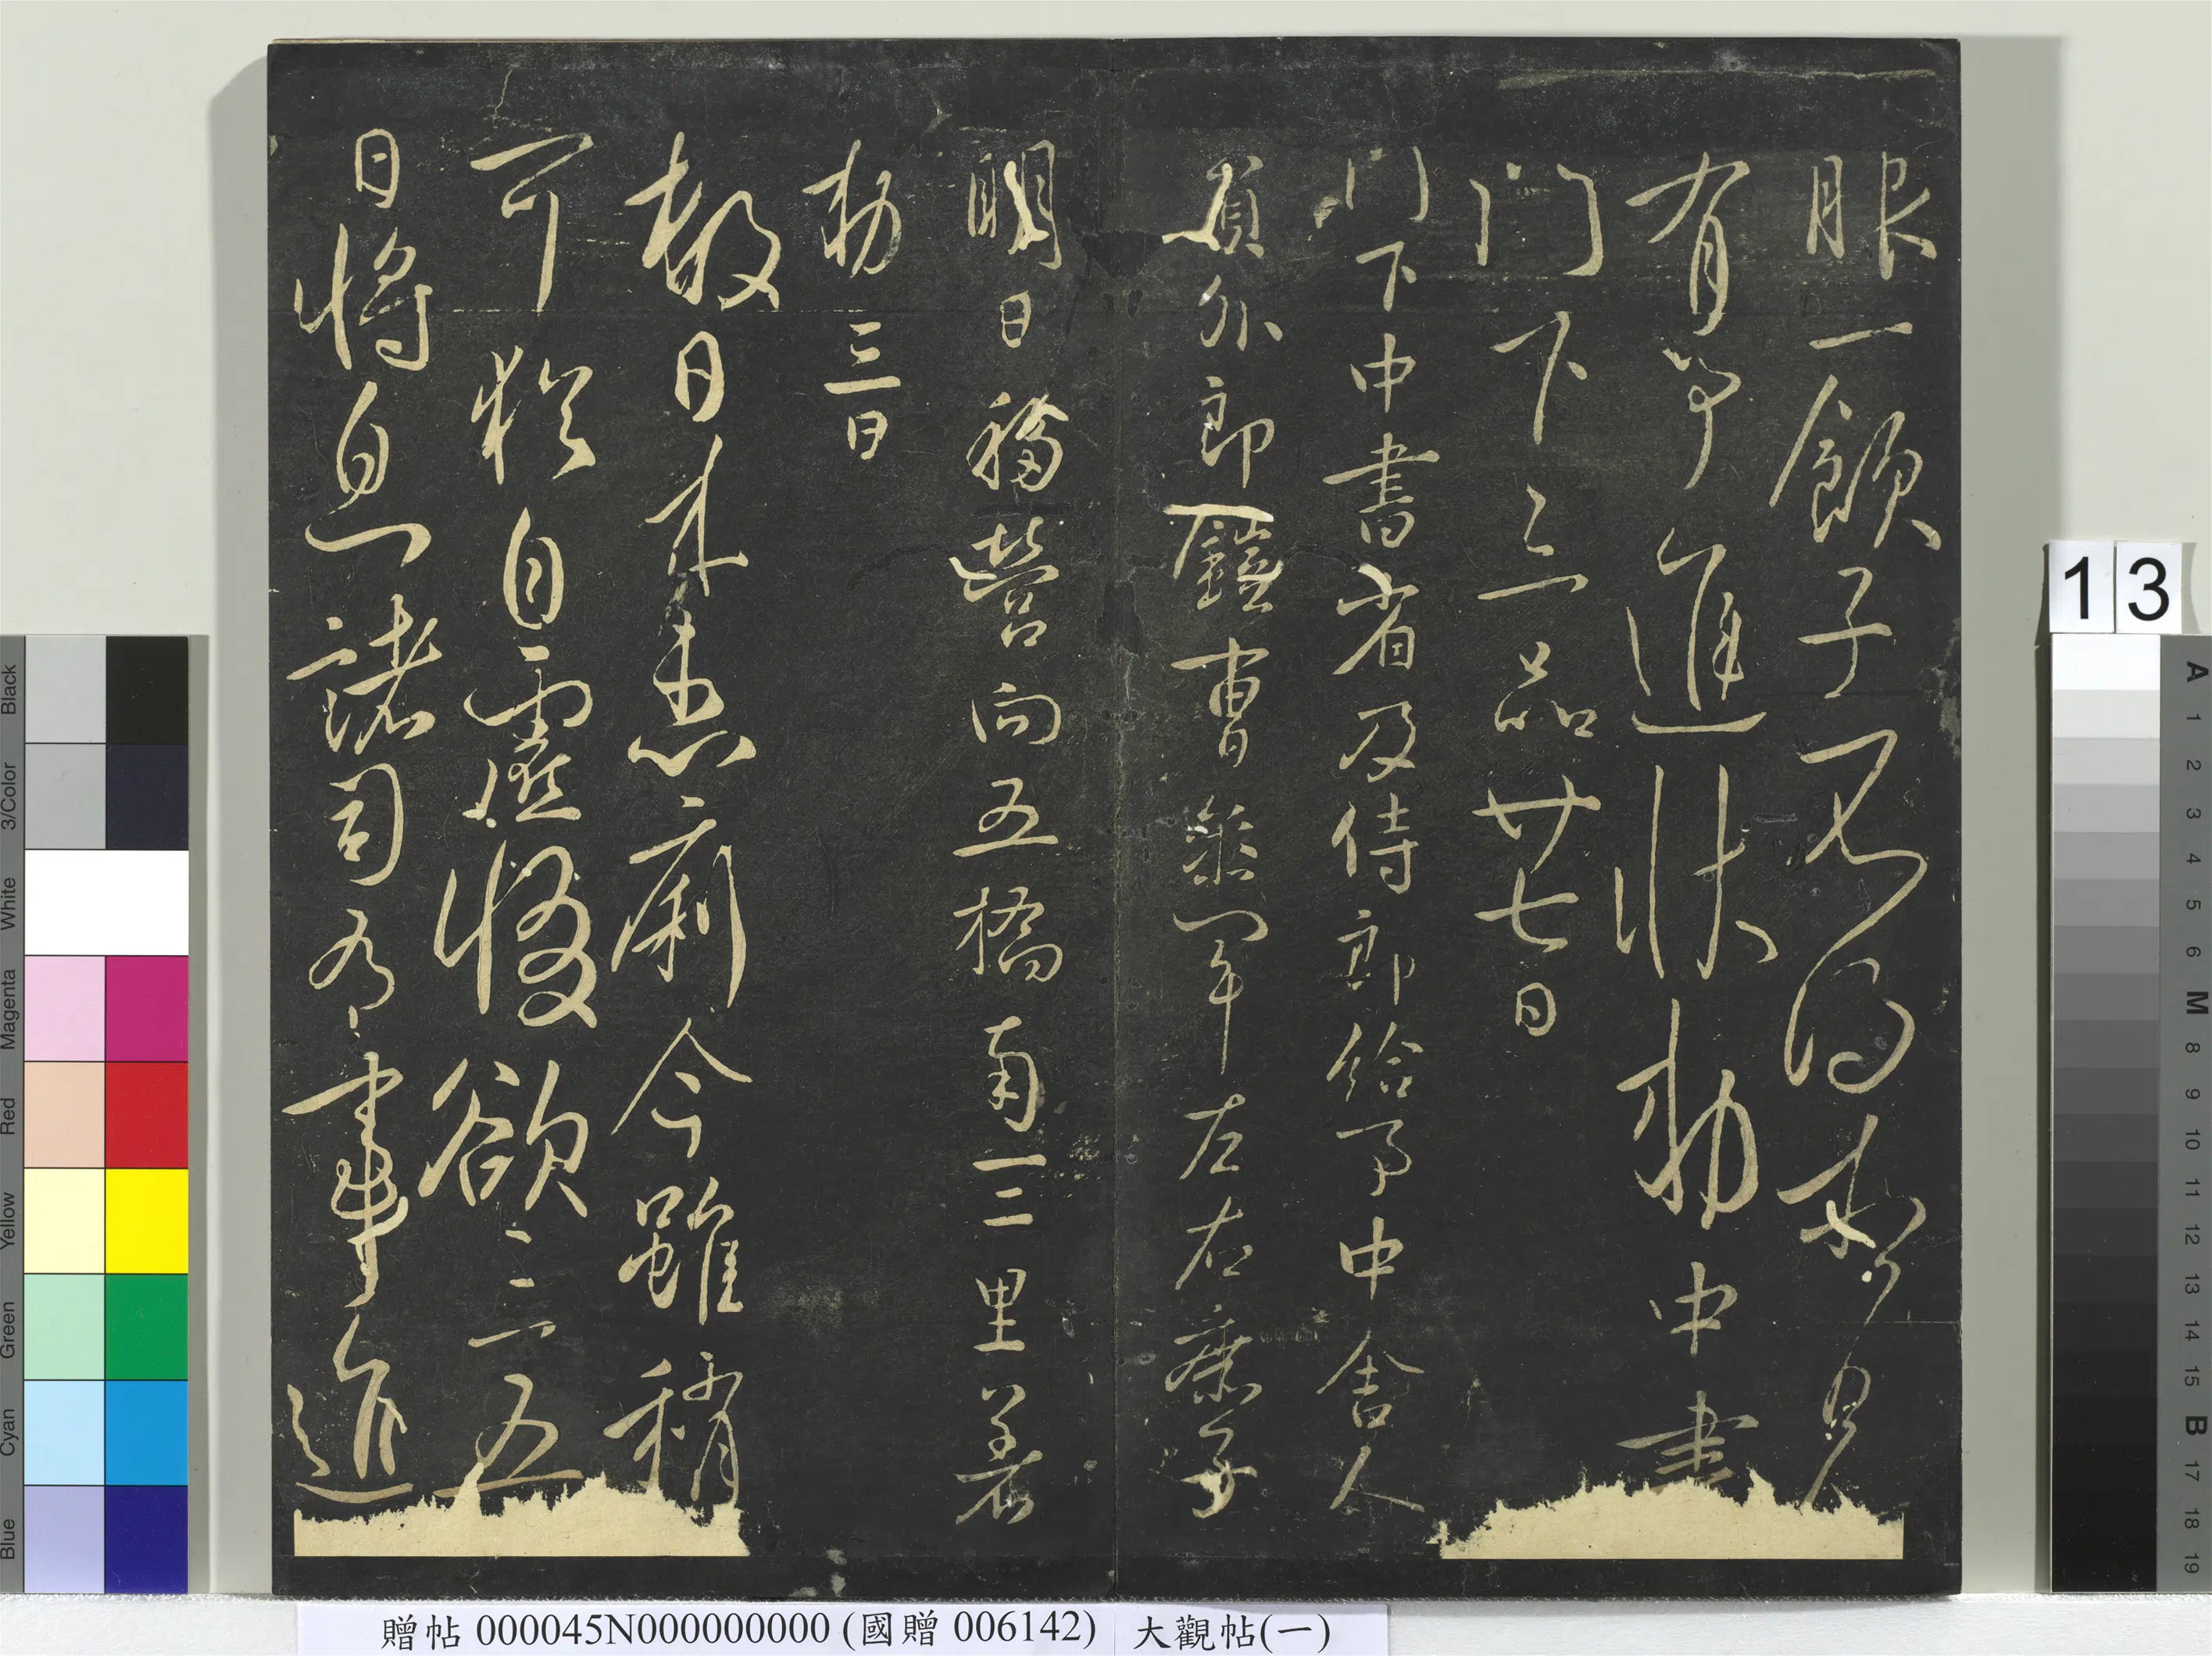 眼一子得見
有等進狀勅中書
門下三品廿七日
門下中書省及侍郎給事中舍人
員外郎曹年左右庶子
明日移營向五橋南一二里著
勅三日
數日來患痢今雖稍
可猶自虛惙欲三五
日將息諸司有事進
贈帖 000045N000000000 (國贈 006142) 大觀帖(一)
13
Black
3/Color
White
Magenta
Red
Yellow
Green
Cyan
Blue
A 1 2 3 4 5 6 M 8 9 10 11 12 13 14 15 B 17 18 19